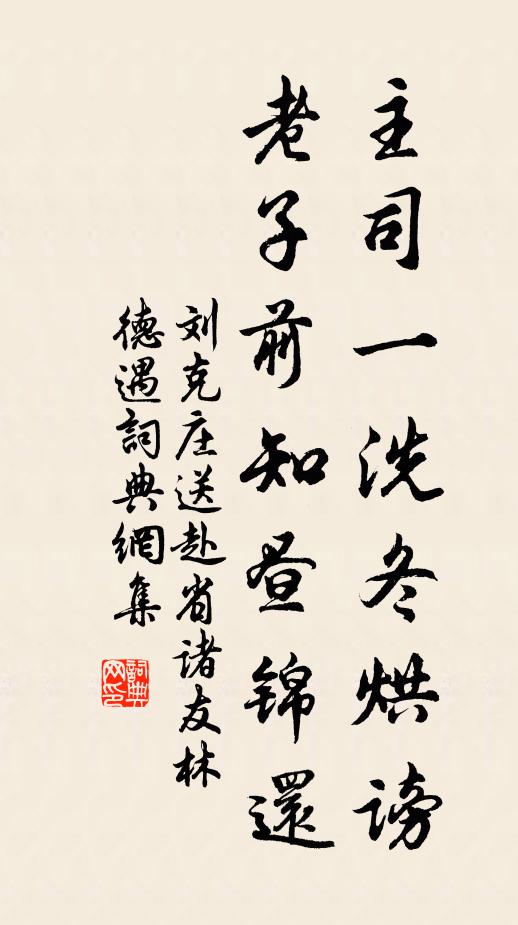 主司一洗冬烘謗
老子前知昼錦還
刘克庄送赴省诸友林
德遇詞典網集
詞典
网印